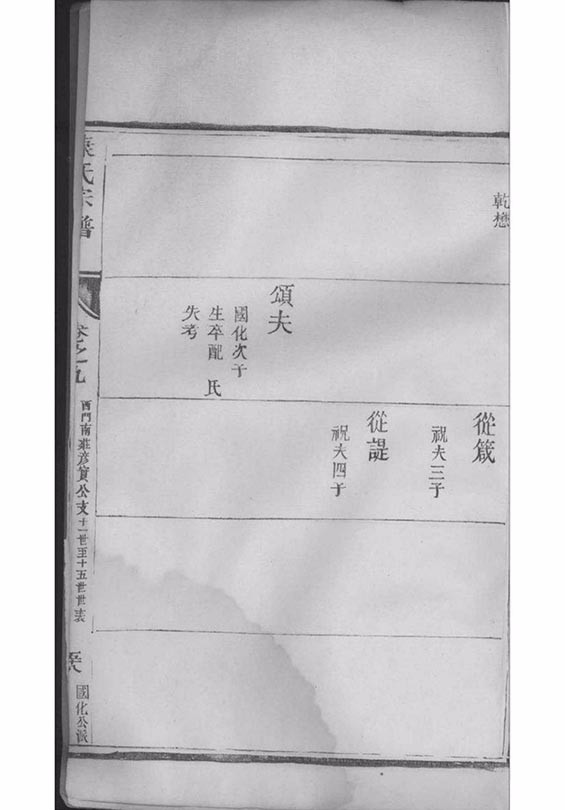 乾懋
頌夫
國化次子
生卒配 氏
失考
從箴
祝夫三子
從諟
祝夫四子
氏宗譜
卷之九
西門南莊彥賓公支十一世至十五世世表
國化公派